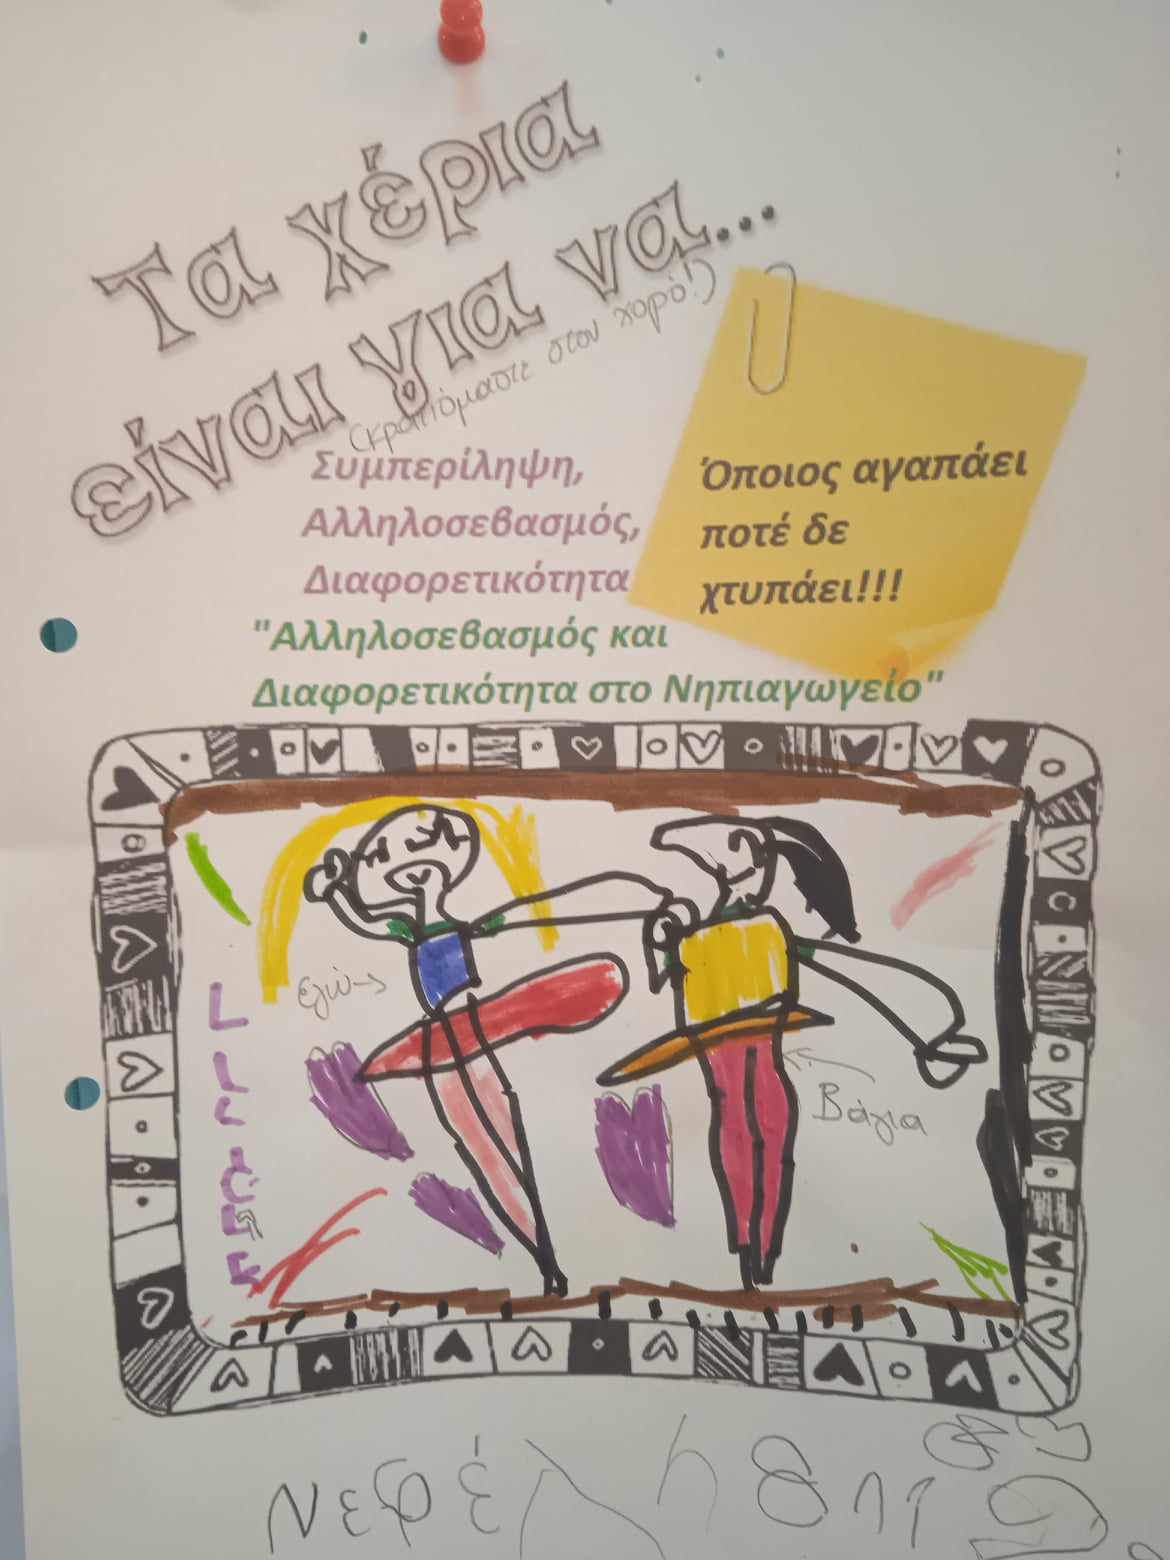 Τα χέρια
είναι για να...
(κρατιόμαστε στον χορό!)
Συμπερίληψη,
Αλληλοσεβασμός,
Διαφορετικότητα
"Αλληλοσεβασμός και
Διαφορετικότητα στο Νηπιαγωγείο"
Όποιος αγαπάει
ποτέ δε
χτυπάει!!!
εγώ
Βάγια
Νεφέλη